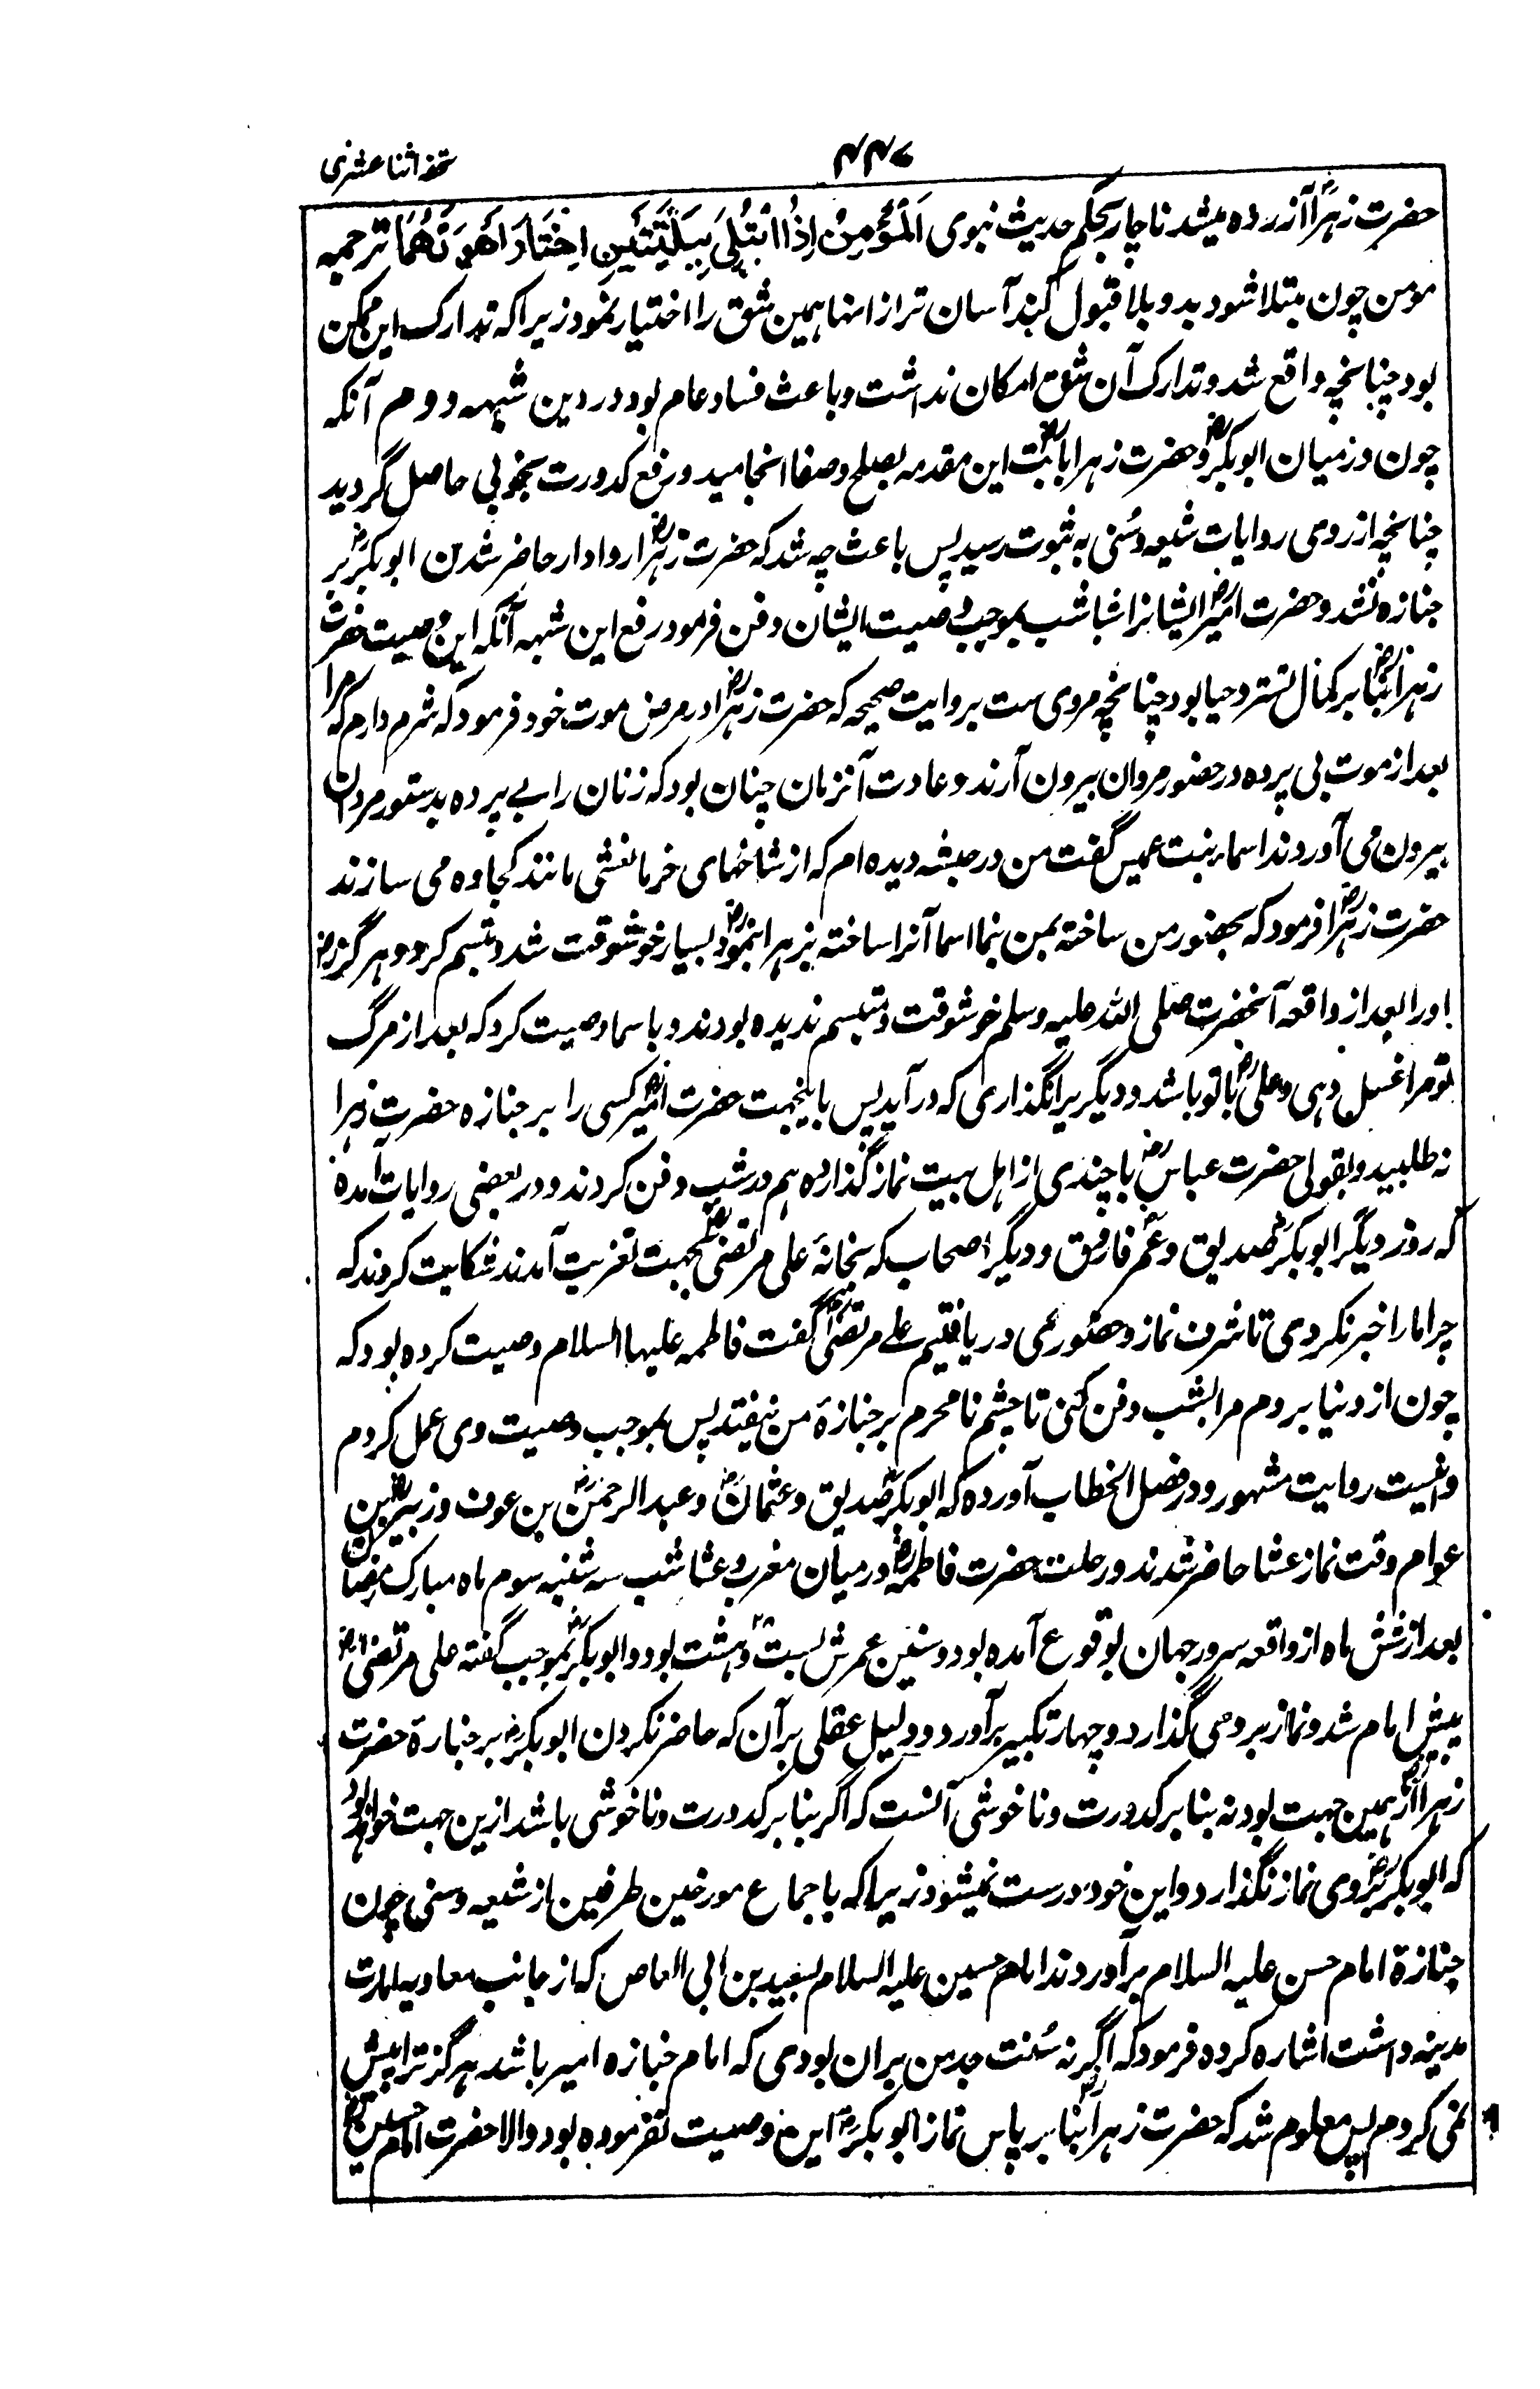 تحفه اثنا عشری
۴۴۷
حضرت زهراؓ آزرده میشد ناچار بحکم حدیث نبوی اَلْمُؤْمِنُ اِذَا ابْتُلِیَ بِبَلِیَّتَیْنِ اِخْتَارَ اَهْوَنَهُمَا ترجمه
مومن چون مبتلا شود بدو بلا قبول کند آسان تر از انها همین شق را اختیار نمود زیرا که تدارک این ممکن
بود چنانچه واقع شد و تدارک آن شق امکان نداشت و باعث فساد عام بود در دین شبهه دوم آنکه
چون در میان ابوبکرؓ و حضرت زهراؓ بابت این مقدمه بصلح و صفا انجامید و رفع کدورت بخوبی حاصل گردید
چنانچه از روی روایات شیعه و سُنی به ثبوت رسید پس باعث چه شد که حضرت زهراؓ روادار حاضر شدن ابوبکرؓ بر
جنازه نشد و حضرت امیرؓ ایشانرا شباشب بموجب وصیت ایشان دفن فرمود رفع این شبهه آنکه این وصیت حضرت
زهراؓ بنا بر کمال تستر و حیا بود چنانچه مروی ست بروایت صحیحه که حضرت زهراؓ در مرض موت خود فرمود که شرم دارم که مرا
بعد از موت بی پرده در حضور مردان بیرون آرند و عادت آنزمان چنان بود که زنان را بے پرده بدستور مردان
بیرون می آوردند اسما بنت عمیس گفت من در حبشه دیده ام که از شاخهای خرما نعشی مانند کجاوه می سازند
حضرت زهراؓ فرمود که بحضور من ساخته بمن بنما اسما آنرا ساخته بزهراؓ نمود بسیار خوشوقت شد و تبسم کرد و هرگز
اورا بعد از واقعه آنحضرت صلی الله علیه وسلم خوشوقت و متبسم ندیده بودند و باسما وصیت کرد که بعد از مرگ
تو مرا غسل دهی و علیؓ با تو باشد و دیگریرا نگذاری که در آید پس باینجهت حضرت امیرؓ کسی را بر جنازه حضرت زهرا
نه طلبید و بقولی حضرت عباسؓ با چندی از اهل بیت نماز گذارده هم در شب دفن کردند و در بعضی روایات آمده
که روز دیگر ابوبکرؓ صدیق و عمرؓ فاروق و دیگر اصحاب که بخانهٔ علی مرتضیؓ بجهت تعزیت آمدند شکایت کردند که
چرا ما را خبر نکردی تا شرف نماز و حضور می دریافتیم علے مرتضیؓ گفت فاطمه علیها السلام وصیت کرده بود که
چون از دنیا بروم مرا بشب دفن کنی تا چشم نا محرم بر جنازهٔ من نیفتد پس بموجب وصیت وی عمل کردم
و اینست روایت مشهور و در فصل الخطاب آورده که ابوبکرؓ صدیق و عثمانؓ و عبدالرحمنؓ بن عوف و زبیرؓ بن
عوام وقت نماز عشا حاضر شدند و رحلت حضرت فاطمهؓ در میان مغرب و عشا شب سه شنبه سوم ماه مبارک رمضان
بعد از شش ماه از واقعه سرور جهان بوقوع آمده بود و سنین عمرش بست و هشت بود و ابوبکرؓ بموجب گفته علی مرتضیؓ
پیش امام شد و نماز بر وی گذارد و چهار تکبیر بر آورد و دلیل عقلی بر آن که حاضر نکردن ابوبکرؓ بر جنازهٔ حضرت
زهراؓ از همین جهت بود نه بنا بر کدورت و ناخوشی آنست که اگر بنا بر کدورت و ناخوشی باشد ازین جهت خواهد بود
که ابوبکرؓ بر وی نماز نگذارد و این خود درست نمیشود زیرا که باجماع مورخین طرفین از شیعه و سنی چون
جنازهٔ امام حسن علیه السلام بر آوردند امام حسین علیه السلام بسعید بن ابی العاص که از جانب معاویه امارت
مدینه داشت اشاره کرده فرمود که اگر نه سُنت جد من بران بودی که امام جنازه امیر باشد هرگز ترا پیش
نمی کردم پس معلوم شد که حضرت زهراؓ بنا بر پاس نماز ابوبکرؓ این وصیت نفرموده بود والا حضرت امام حسینؓ